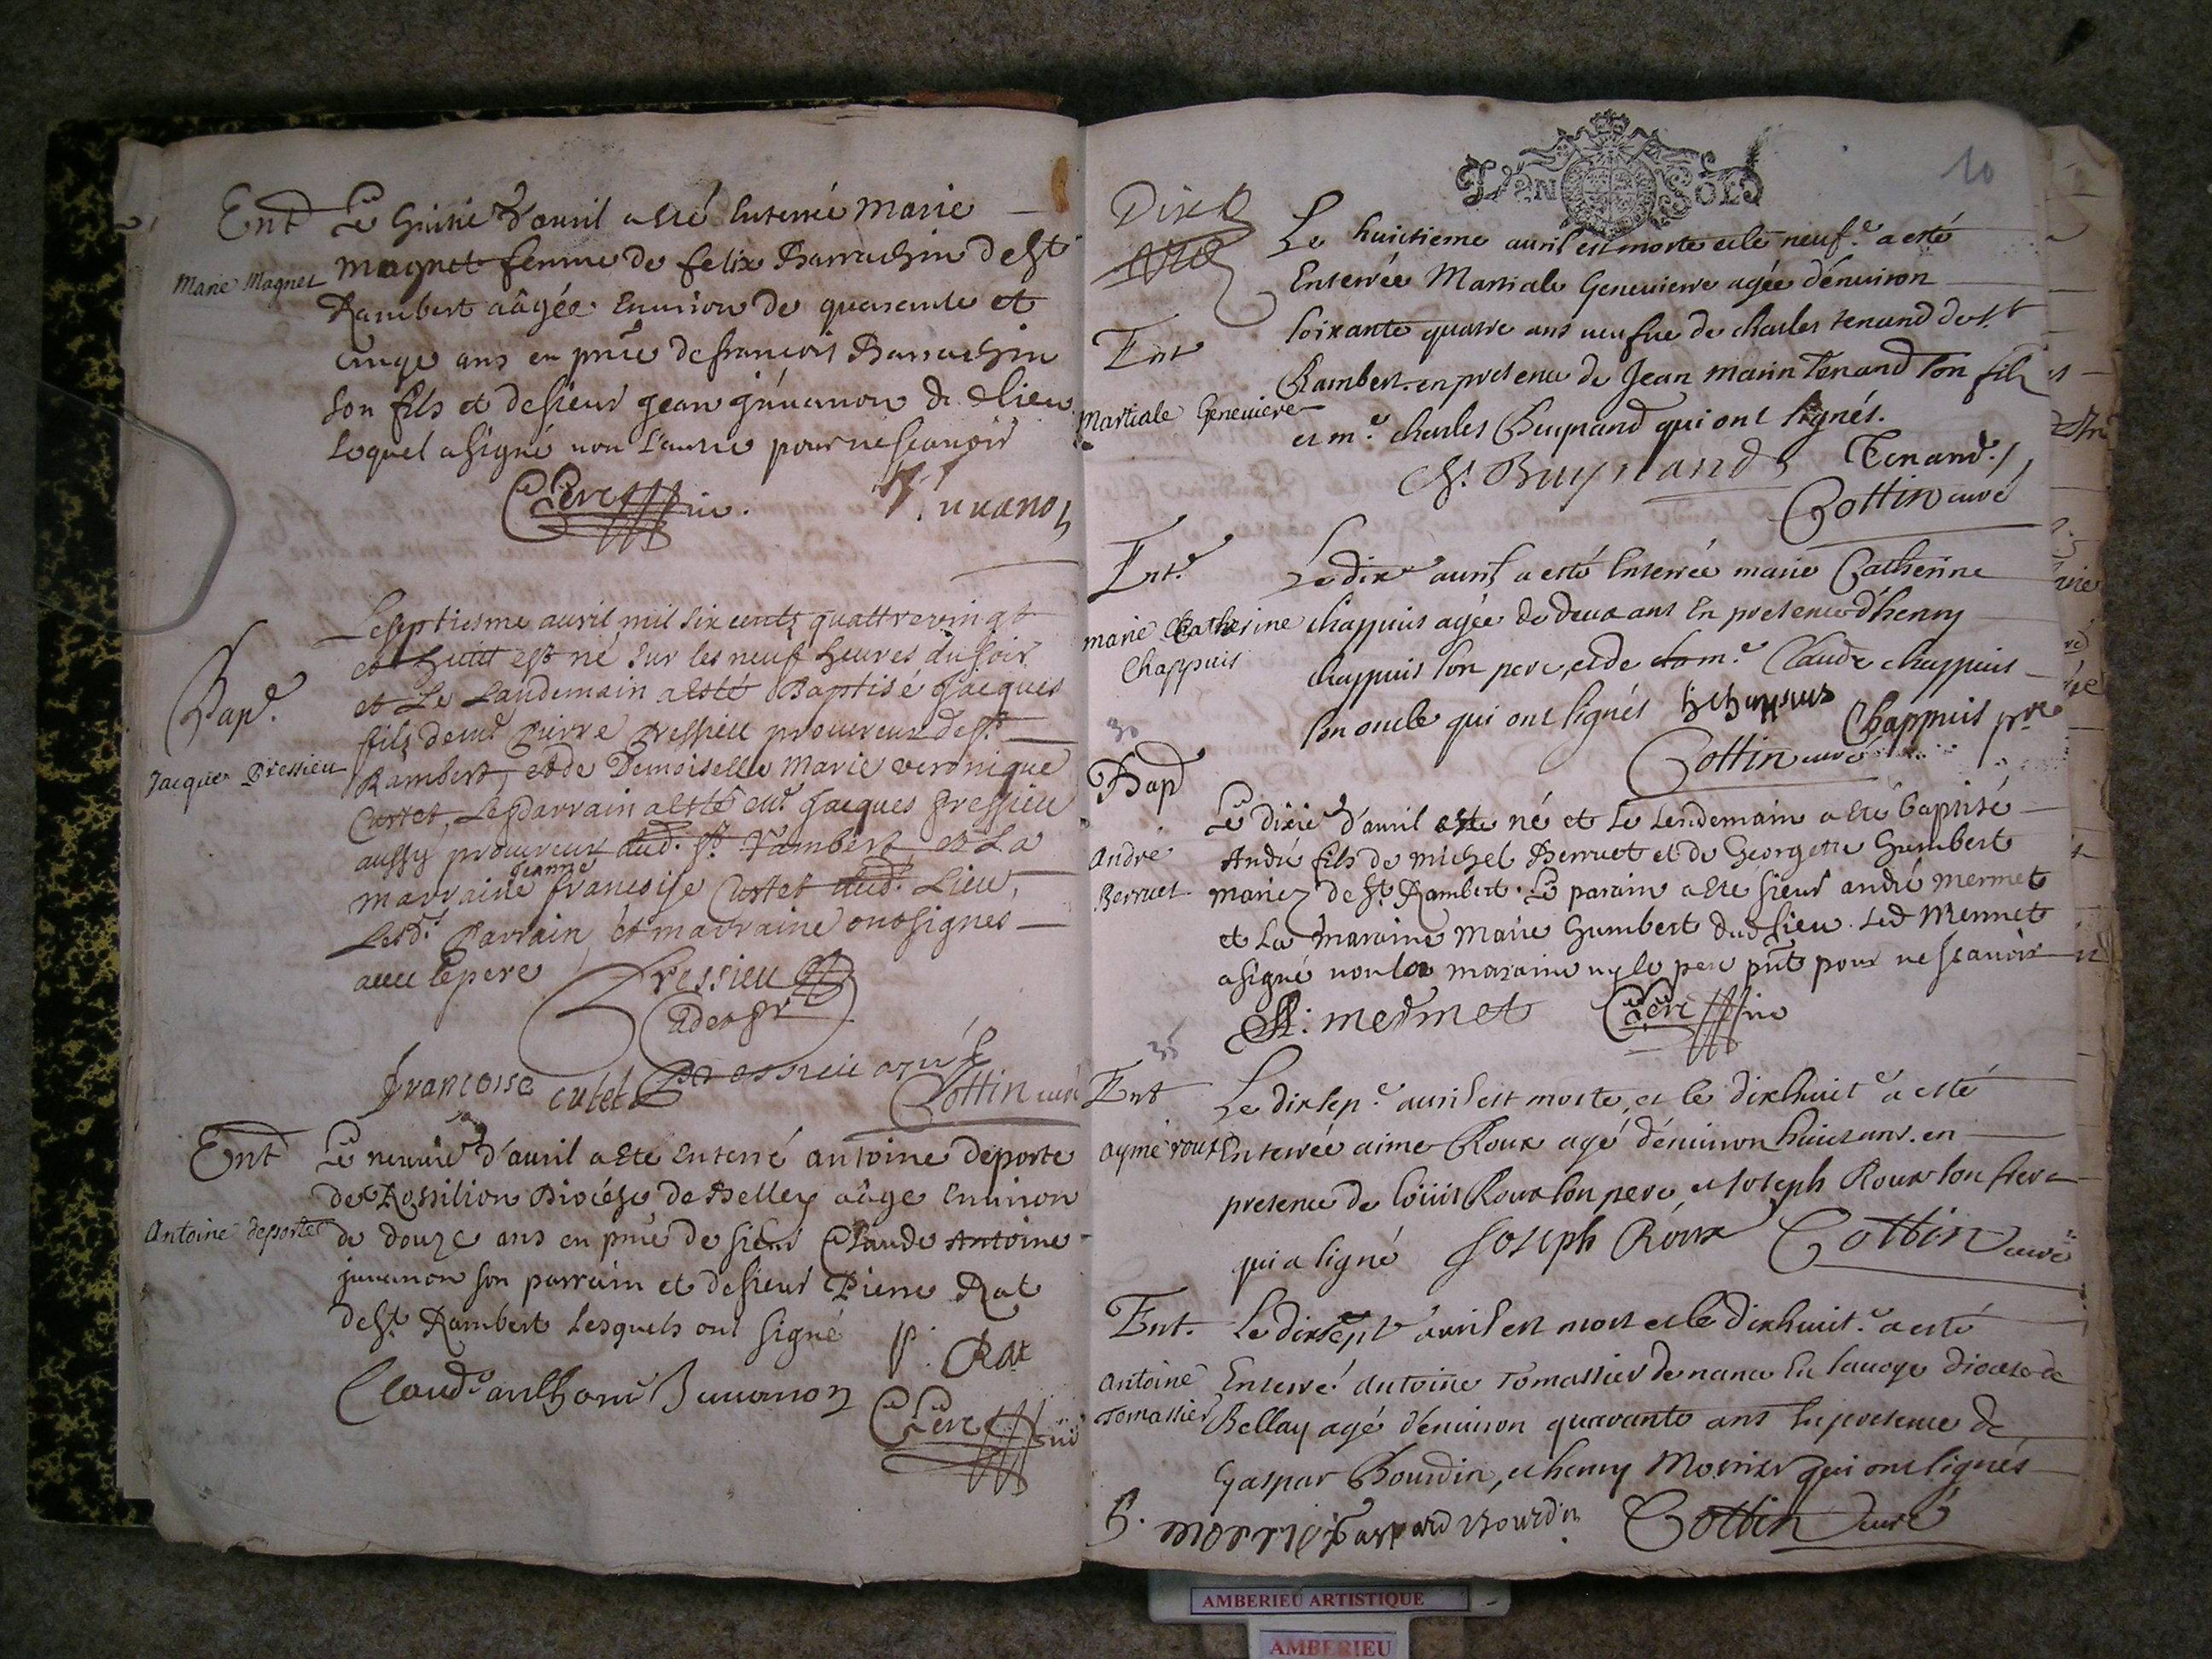 Ent
Le huitie d'avril a esté enterrée Marie
Marie Magnet
Magnet femme de felix Barrachin de St
Rambert aâgée environ de quarante et
cinqe ans en pnce de francois Barrachin
son fils et de sieur Jean Juvanon du d lieu
lequel a signé non l'autre pour ne scavoir
Le septiesme avril mil six cents quattrevingt
et huitt est né sur les neuf heures du soir
Bap.
et Le Landemain a esté Baptisé Jacques
fils de me Pierre Pressieu procureur de St
Jacques Pressieu
Rambert, et de Demoiselle Marie veronique
Cartet, Le parrain a esté me Jacques Pressieu
aussy procureur dud. St Rambert et La
jeanne
marraine francoise Cartet dud. Lieu,
Lesd. Parrain et marraine ont signés
avec le pere
Pressieu
francoise cutet
Cottin curé
Ent
Le neuvie d'avril a este enterré antoine deporte
de Rossilion Diocése de Belley aâge environ
Antoine deporte
de douze ans en pnce de sieur Claude Antoine
juvanon son parrain et de sieur Pierre Rat
de St Rambert lesquels ont signé
P. Rat
Claude anthone Juvanon
10
DIX SOLS
Le huictieme avril est morte et le neufe a esté
Enterrée Martiale Genevieve agée d'environ
Ent
soixante quatre ans veufve de charles tenand de St
Rambert. en presence de Jean marin Tenand son fils
Martiale Genevieve
et me charles Buynand qui ont signés.
Ch. Buynand Tenand
Cottin curé
Ent.
Le dixe avril a esté Enterrée marie Catherine
marie Catherine
chappuis agée de deux ans En presence d'henry
Chappuis
chappuis son pere, et de me Claude chappuis
son oncle qui ont signés h chappuis Chappuis
Cottin curé
30
Bap
Le dixie d'avril este né et le lendemain a esté baptisé
André
André fils de michel Berruet et de Georgette humbert
Berruet
mariez de St Rambert. Le parain a esté sieur andré mermet
et la maraine Marie humbert dud lieu. Led Mermet
a signé non la maraine ny le pere pnt pour ne scavoir
A: mermet
35
Ent
Le dixsepe avril est morte, et le dixhuite a esté
aymé roux
Enterrée aimé Roux agé d'environ huict ans. en
presence de loüis Roux son pere et Joseph Roux son frere
qui a signé Joseph Roux Cottin curé
Ent.
Le dixsept avril est mort et le dixhuit.e a esté
Antoine
Enterré antoine Tomassier de nance En Savoye diocese de
Tomassier
Bellay agé d'environ quarante ans En presence de
Gaspar Bourdin, et henry Mornier qui ont signés
h. mornie Gaspard Bourdin Cottin curé
AMBERIEU ARTISTIQUE
AMBERIEU